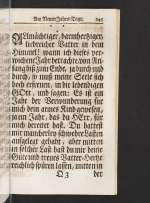 Am Neuen Jahrs-Tage. 245
Allmächtiger, barmhertziger,
liebreicher Vatter in dem
Himmel! wann ich dieses ver-
wichene Jahr betrachte, von An-
fang biß zum Ende, ja durch und
durch, so muß meine Seele sich
hoch erfreuen, in dir lebendigen
GOtt, und sagen: Es ist ein
Jahr der Verwunderung für
mich dein armes Kind gewesen,
ja ein Jahr, das du HErr, für
mich bereitet hast. Du hattest
mir manchesley schwehre Lasten
aufgelegt gehabt, aber mitten
in solcher Last hast du mir deine
Güte und treues Vatter-Hertz
reichlich spüren lassen, mitten in
Q 3 der